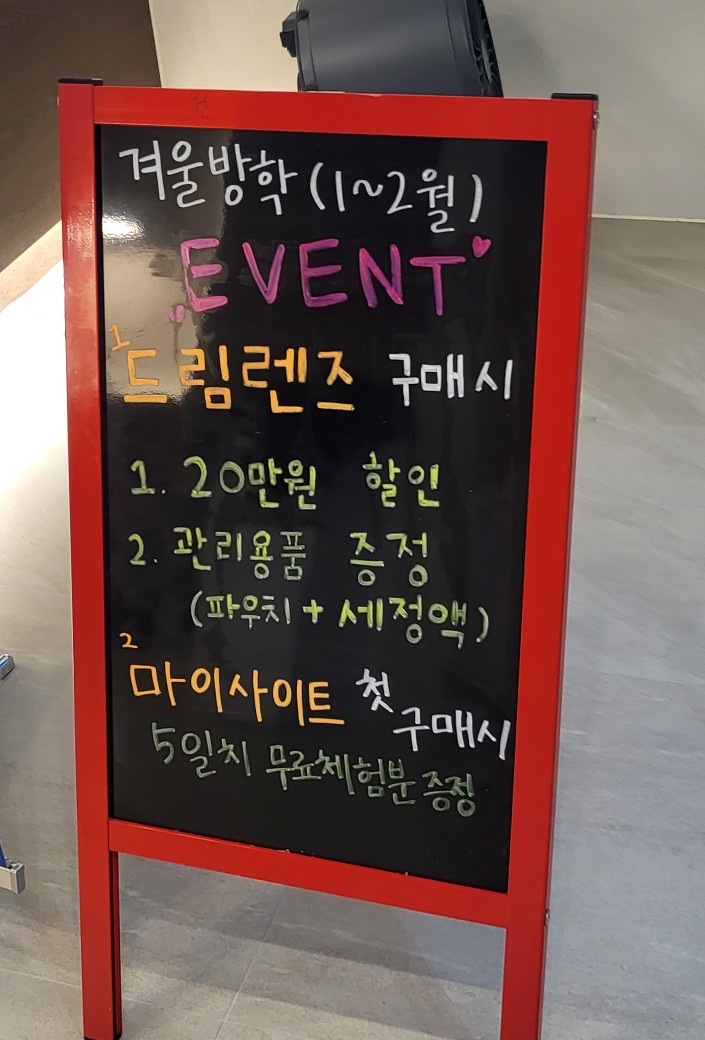 겨울방학 (1~2월)
EVENT
1 드림렌즈 구매시
1. 20만원 할인
2. 관리용품 증정
(파우치 + 세정액)
2 마이사이트 첫 구매시
5일치 무료체험분 증정